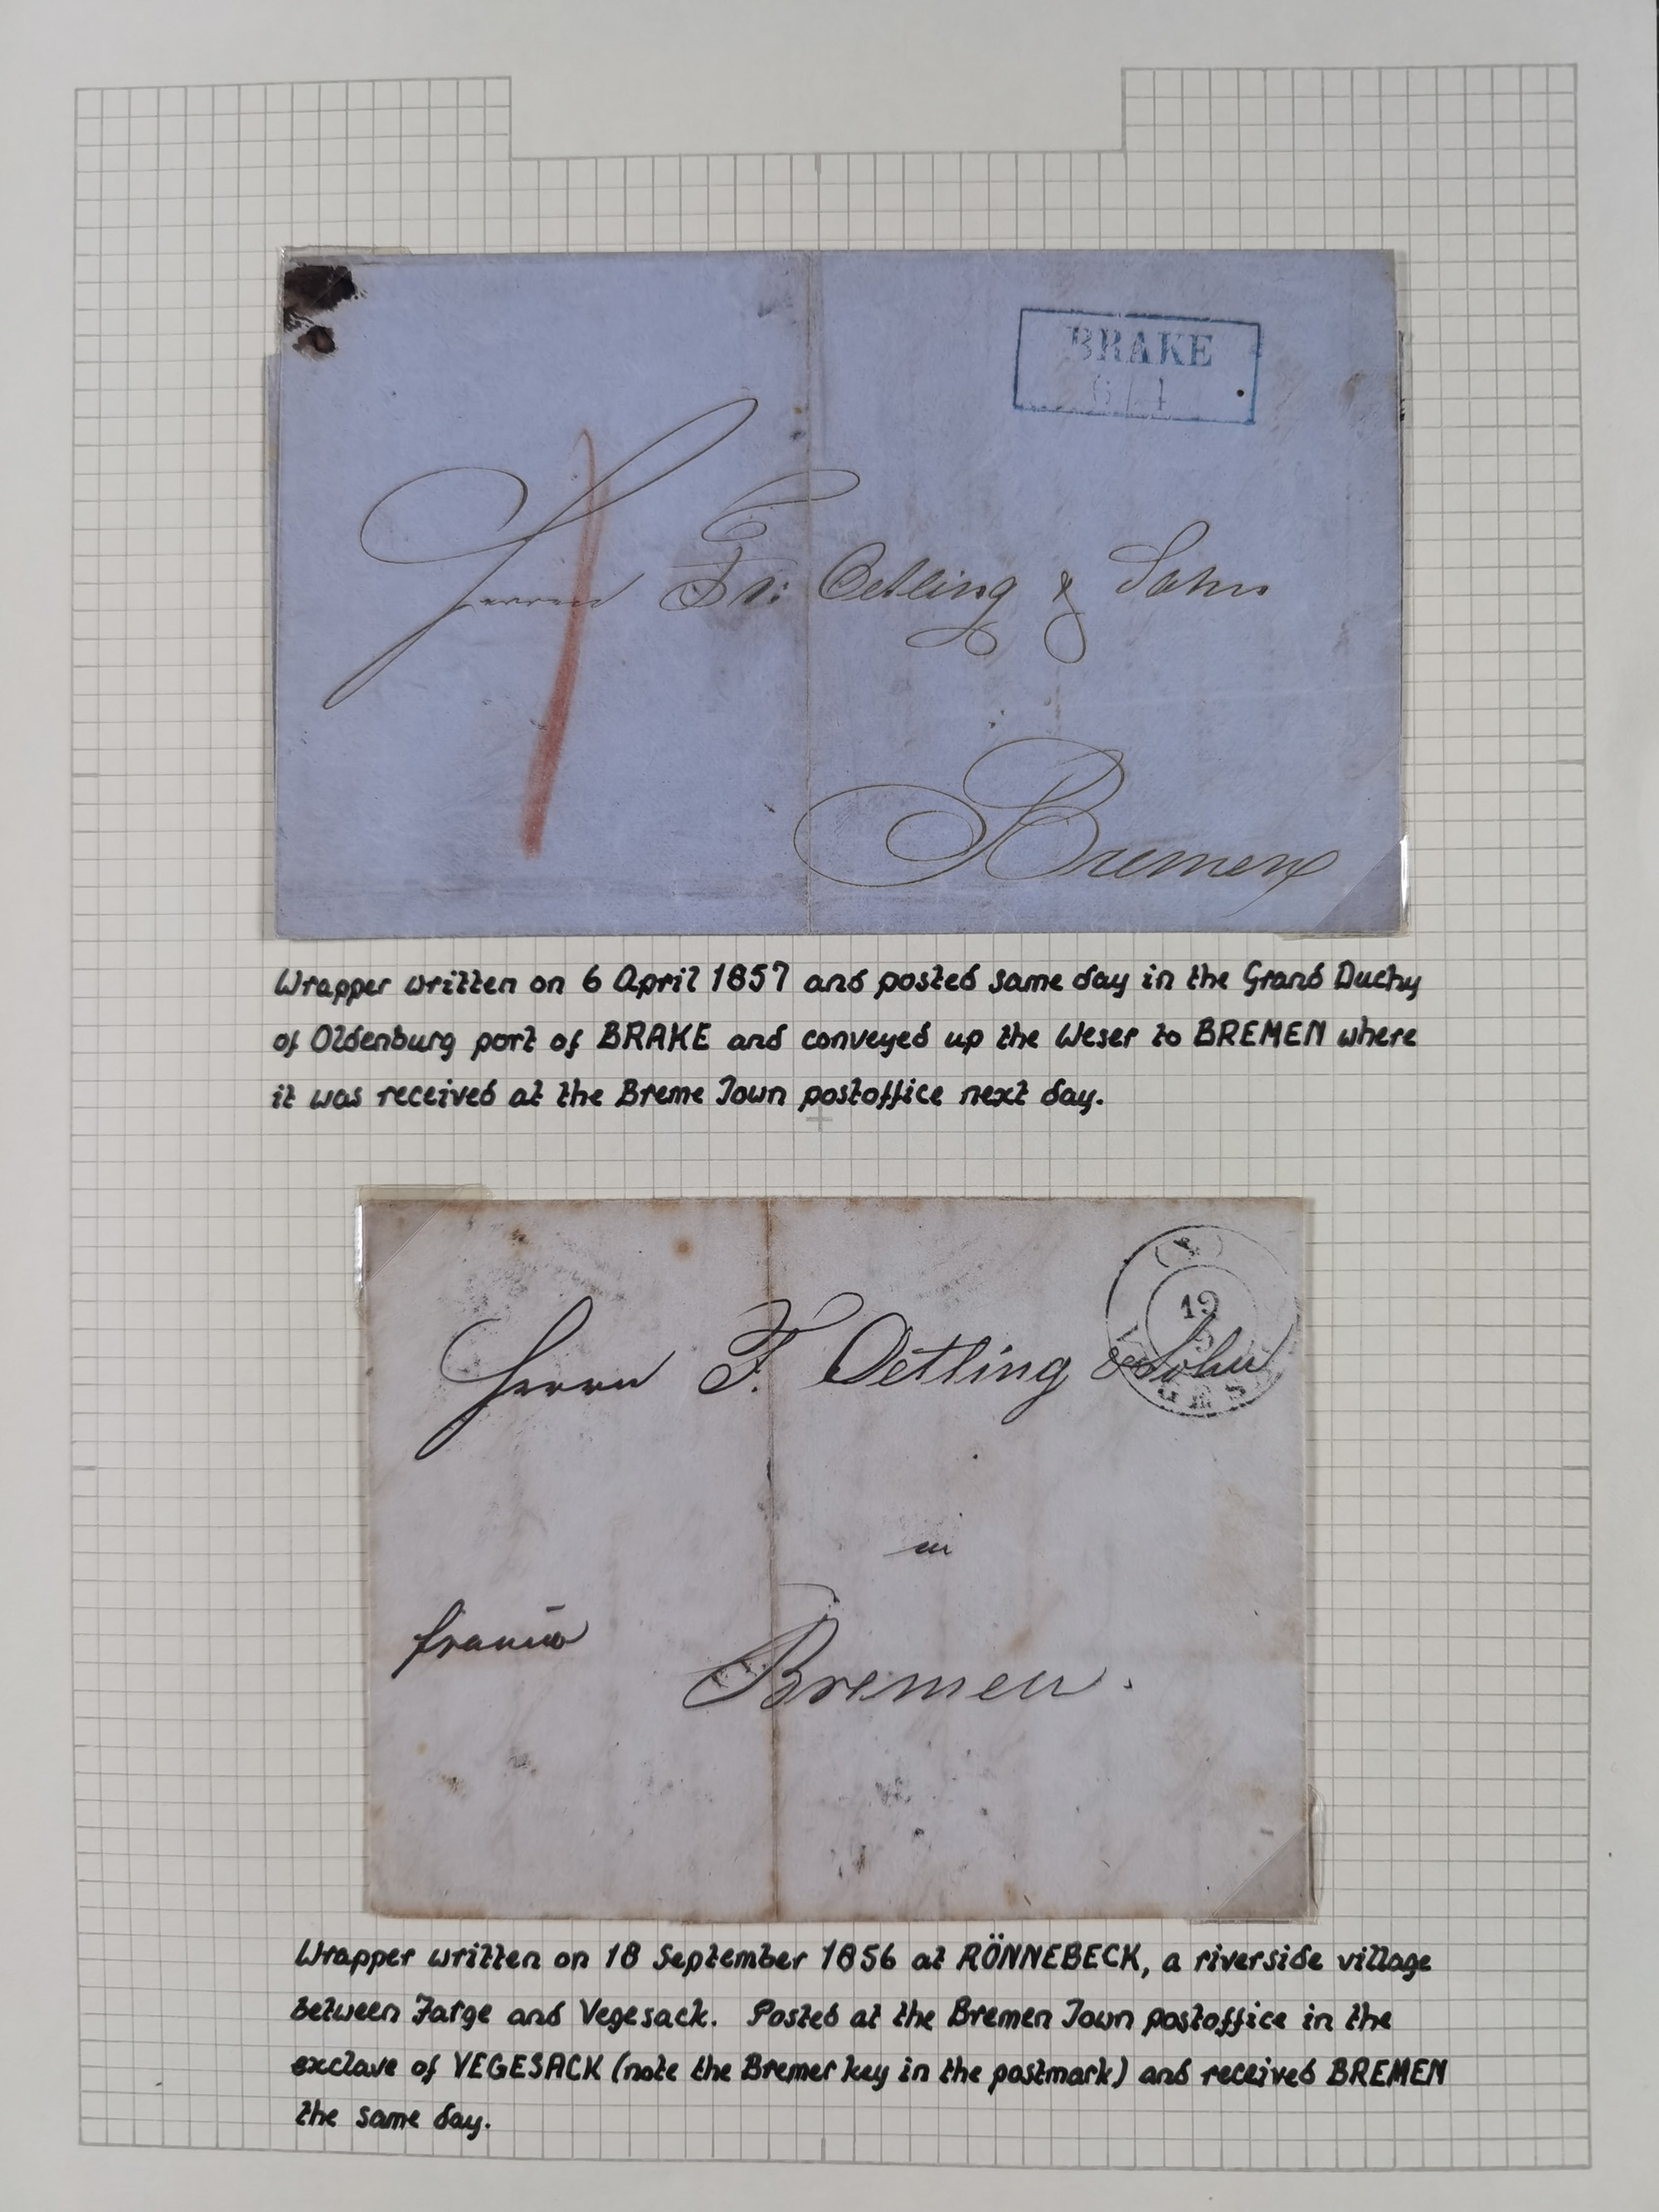 BRAKE
6/4
Herren Fr: Oetling & Sohn
Bremen
Wrapper written on 6 April 1857 and posted same day in the Grand Duchy
of Oldenburg port of BRAKE and conveyed up the Weser to BREMEN where
it was received at the Breme Town postoffice next day.
19
Herrn F. Oetling & Sohn
in
franco
Bremen.
Wrapper written on 18 September 1856 at RÖNNEBECK, a riverside village
between Farge and Vegesack. Posted at the Bremen Town postoffice in the
exclave of VEGESACK (note the Bremer key in the postmark) and received BREMEN
the same day.